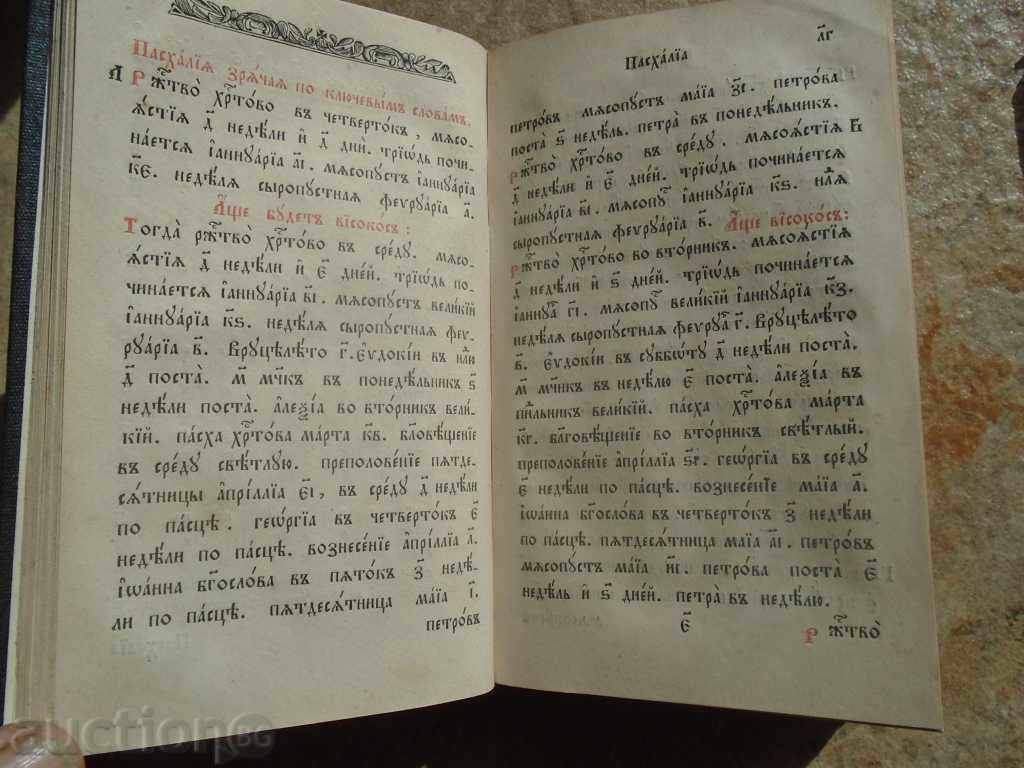 Пасха́лїѧ зрѧ́чаѧ по ключевы́мъ слова́мъ.
А Рж҃тво̀ хр҇то́во въ четверто́къ, мѧсо-
ѧ́стїѧ д҃ недѣ́ли и҆ д҃ дни́. трїѡ́дь почи-
на́етсѧ і҆аннуа́рїа а҃і. мѧсопу́стъ і҆аннуа́рїа
к҃є. недѣ́лѧ сыропу́стнаѧ феѵруа́рїа а҃.
А҆́ще бу́детъ високо́съ:
Тогда̀ рж҃тво̀ хр҇то́во въ сре́ду. мѧсо-
ѧ́стїѧ д҃ недѣ́ли и҆ є҃ дне́й. трїѡ́дь по-
чина́етсѧ і҆аннуа́рїа в҃і. мѧсопу́стъ вели́кїй
і҆аннуа́рїа к҃ѕ. недѣ́лѧ сыропу́стнаѧ феѵ-
руа́рїа в҃. Вруцѣлѣ́то г҃. Еѵдокі́и въ нл҃ю
д҃ поста̀. м҃ мч҃къ въ понедѣ́льникъ ѕ҃
недѣ́ли поста̀. а҆леѯі́а во вто́рникъ вели́-
кїй. па́сха хр҇то́ва ма́рта к҃в. бл҃говѣ́щенїе
въ сре́ду свѣ́тлую. преполове́нїе пѧтде-
сѧ́тницы а҆прі́ллїа є҃і, въ сре́ду д҃ недѣ́ли
по па́сцѣ. геѡ́ргїа въ четверто́къ є҃
недѣ́ли по па́сцѣ. вознесе́нїе а҆прі́ллїа л҃.
і҆ѡа́нна бг҃осло́ва въ пѧто́къ з҃ недѣ́-
ли по па́сцѣ. пѧтдесѧ́тница ма́їа і҃.
петро́въ
Пасха́лїа
л҃г
петро́въ мѧсопу́стъ ма́їа з҃і. петро́ва
поста̀ ѕ҃ недѣ́ль. петра̀ въ понедѣ́льникъ.
Рж҃тво̀ хр҇то́во въ сре́ду. мѧсоѧ́стїѧ Б
д҃ недѣ́ли и҆ є҃ дне́й. трїѡ́дь почина́етсѧ
і҆аннуа́рїа в҃і. мѧсопу́ і҆аннуа́рїа к҃ѕ. нл҃ѧ
сыропу́стнаѧ феѵруа́рїа в҃. А҆́ще високо́съ:
Рж҃тво̀ хр҇то́во во вто́рникъ. мѧсоѧ́стїѧ
д҃ недѣ́ли и҆ ѕ҃ дне́й. трїѡ́дь почина́етсѧ
і҆аннуа́ г҃і. мѧсопу́ вели́кїй і҆аннуа́рїа к҃з.
недѣ́лѧ сыропу́стнаѧ феѵруа́ г҃. Вруцѣлѣ́то
в҃. Еѵдокі́и въ суббѡ́ту д҃ недѣ́ли поста̀.
м҃ мч҃къ въ недѣ́лю є҃ поста̀. а҆леѯі́а въ
пн҃льникъ вели́кїй. па́сха хр҇то́ва ма́рта
к҃г. бл҃говѣ́щенїе во вто́рникъ свѣ́тлый.
преполове́нїе а҆прі́ллїа ѕ҃і. геѡ́ргїа въ сре́ду
є҃ недѣ́ли по па́сцѣ. вознесе́нїе ма́їа а҃.
і҆ѡа́нна бг҃осло́ва въ четверто́къ з҃ недѣ́ли
по па́сцѣ. пѧтдесѧ́тница ма́їа а҃і. петро́въ
мѧсопу́стъ ма́їа и҃і. петро́ва поста̀ є҃
недѣ́ль и҆ ѕ҃ дне́й. петра̀ въ недѣ́лю.
є҃
рж҃тво̀
auction